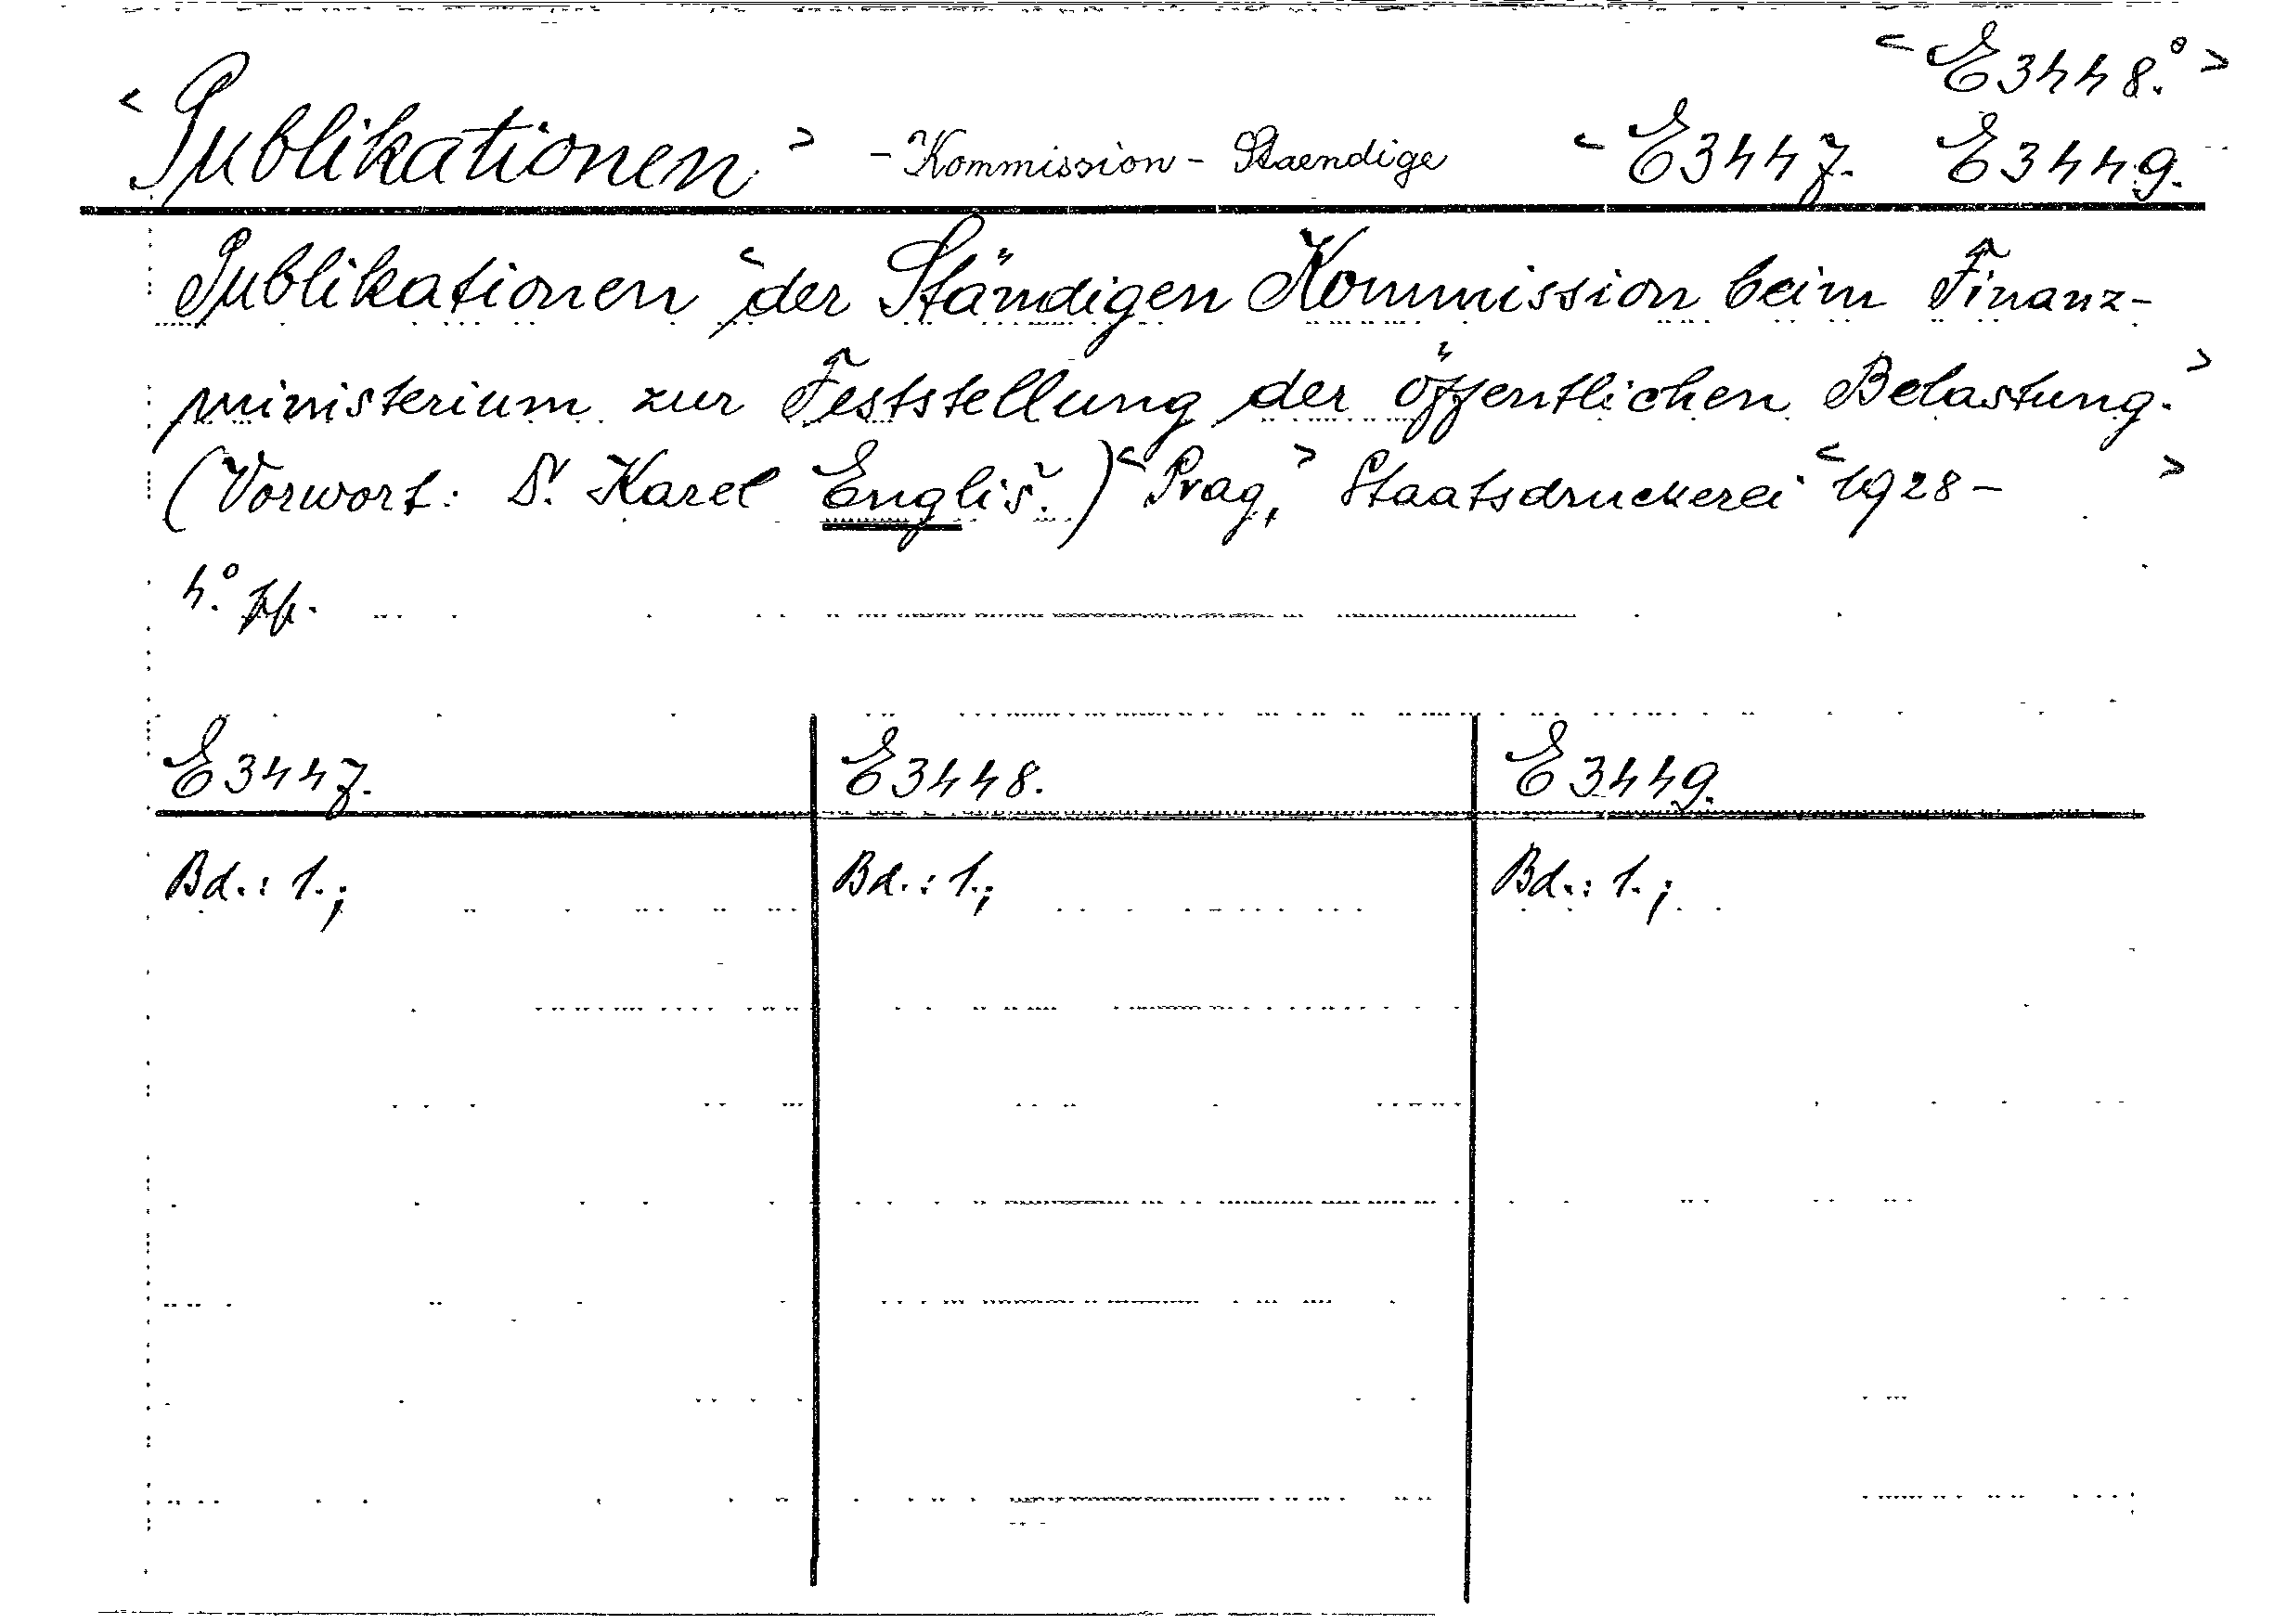 < E3448.° >
< Publikationen > - Kommission - Staendige < E3447. E3449.
Publikationen < der Ständigen Kommission beim Finanz-
ministerium zur Feststellung der öffentlichen Belastung. >
(Vorwort: D. Karel Engliš.) < Prag, > Staatsdruckerei < 1928- >
4.°
E3447. E3448. E3449.
Bd.: 1.; Bd.: 1.; Bd.: 1.;